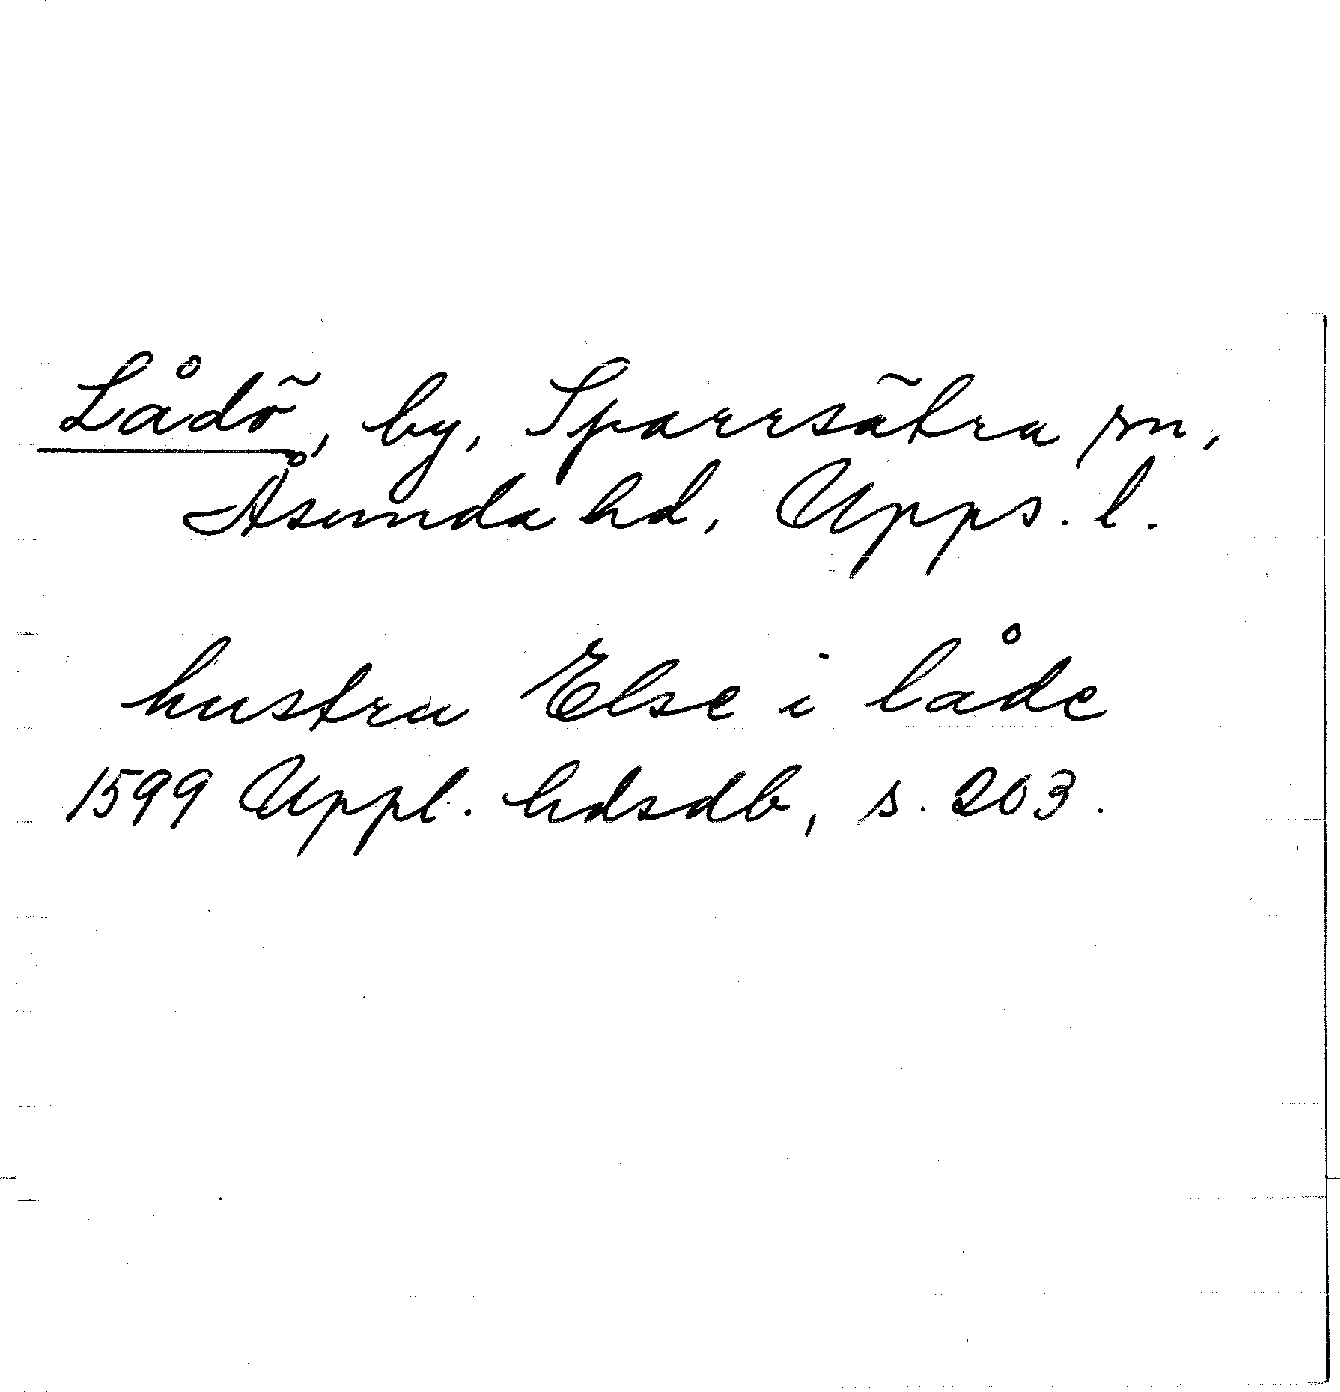 Lådö, by, Sparrsätra sn,
Åsunda hd, Upps. l.
hustru Else i låde
1599 Uppl. hdsdb, s. 203.